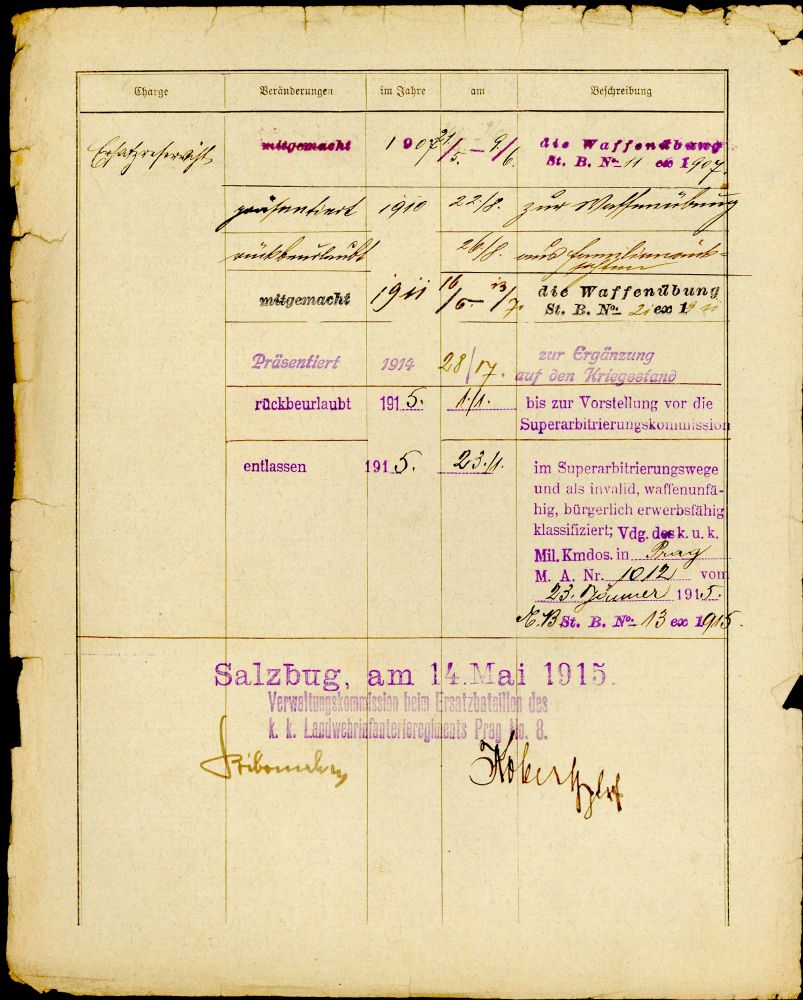 Charge Veränderungen im Jahre am Beschreibung
Ersatzreservist mitgemacht 1907 21/5. – 9/6. die Waffenübung
St. B. No 11 ex 1907.
präsentiert 1910 22/8. zur Waffenübung
rückbeurlaubt 26/8. aus Familienrück-
sichten
mitgemacht 1911 16/6 – 13/7. die Waffenübung
St. B. No 21 ex 1911
Präsentiert 1914 28/17. zur Ergänzung
auf den Kriegsstand
rückbeurlaubt 1915. 1./1. bis zur Vorstellung vor die
Superarbitrierungskommission
entlassen 1915. 23./1. im Superarbitrierungswege
und als invalid, waffenunfä-
hig, bürgerlich erwerbsfähig
klassifiziert; Vdg. des k. u. k.
Mil. Kmdos. in Prag
M. A. Nr. 1012 vom
23. Jänner 1915.
St. B. No 13 ex 1915.
Salzbug, am 14. Mai 1915.
Verwaltungskommission beim Ersatzbataillon des
k. k. Landwehrinfanterieregiments Prag No. 8.